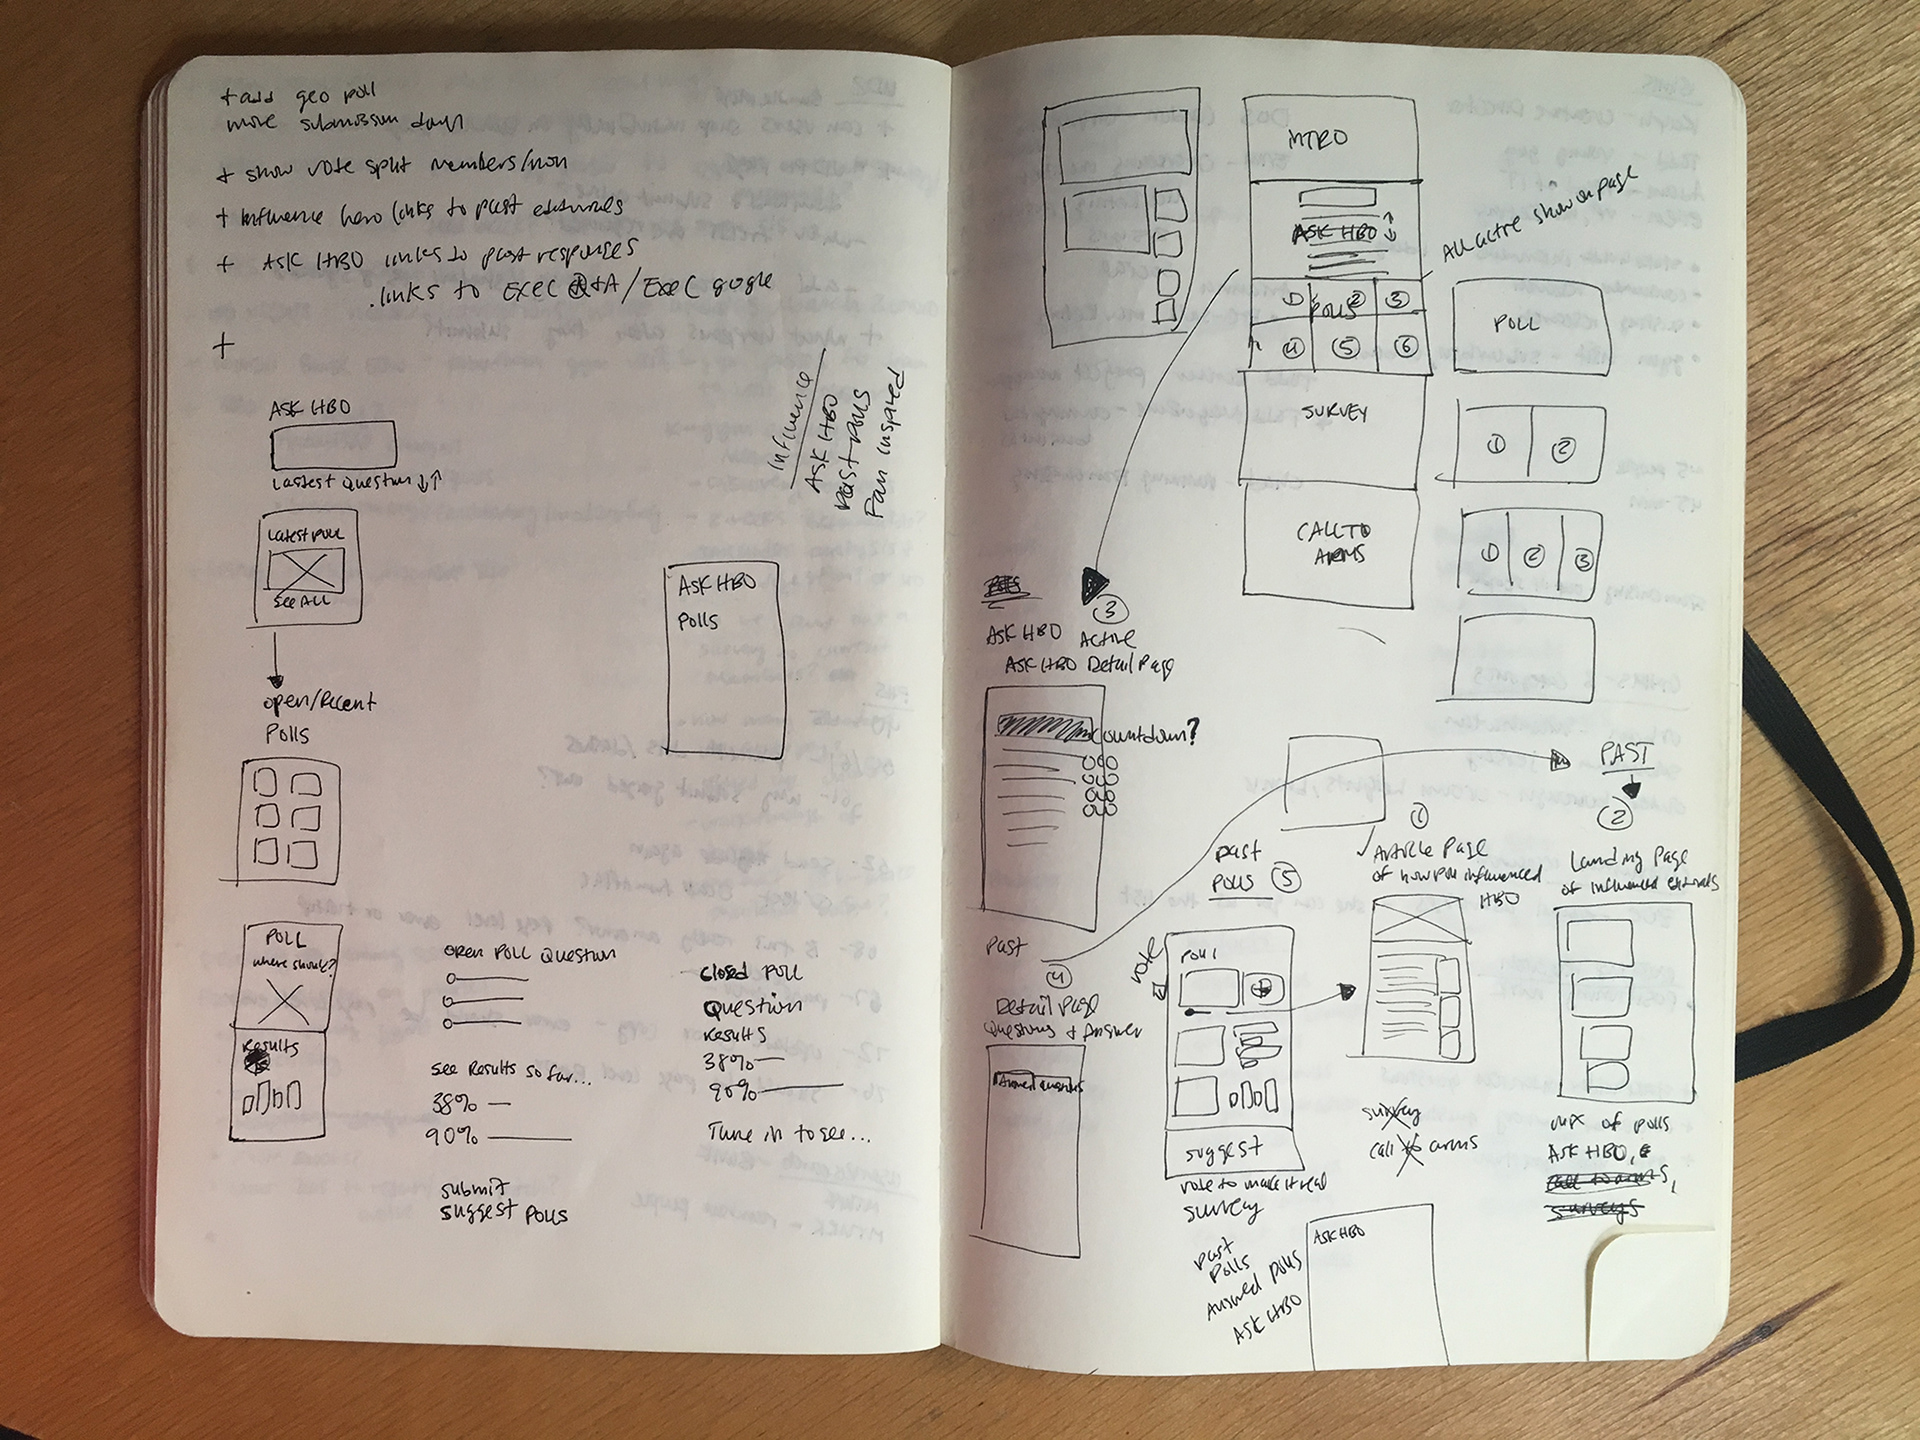 + add geo poll
more submission days
+ show vote split members/non
+ Influence hero links to past editorials
+ ASK HBO links to past responses
. links to EXEC Q+A / EXEC google
+
ASK HBO
Lastest Question ↓↑
Latest poll
See ALL
open/Recent
Polls
POLL
where should?
Results
OPEN POLL QUESTION
See Results so far...
38%
90%
submit
suggest polls
Closed Poll
Question
Results
38%
90%
Tune in to see...
Influence
ASK HBO
Past Polls
Fan Inspired
ASK HBO
Polls
INTRO
ASK HBO
POLLS
1 2 3
4 5 6
SURVEY
CALL TO
ARMS
All active show on page
POLL
1 2
1 2 3
3
ASK HBO Active
ASK HBO Detail Page
Countdown?
PAST
2
Landing Page
of influenced editorials
mix of polls
ASK HBO, &
call to arms,
surveys
1
Article Page
of how poll influenced
HBO
survey
call to arms
past
polls 5
vote
Poll 1
suggest
vote to make it real
survey
Past
4
Detail Page
Questions + Answer
Past
Polls
Answed polls
ASK HBO
ASK HBO